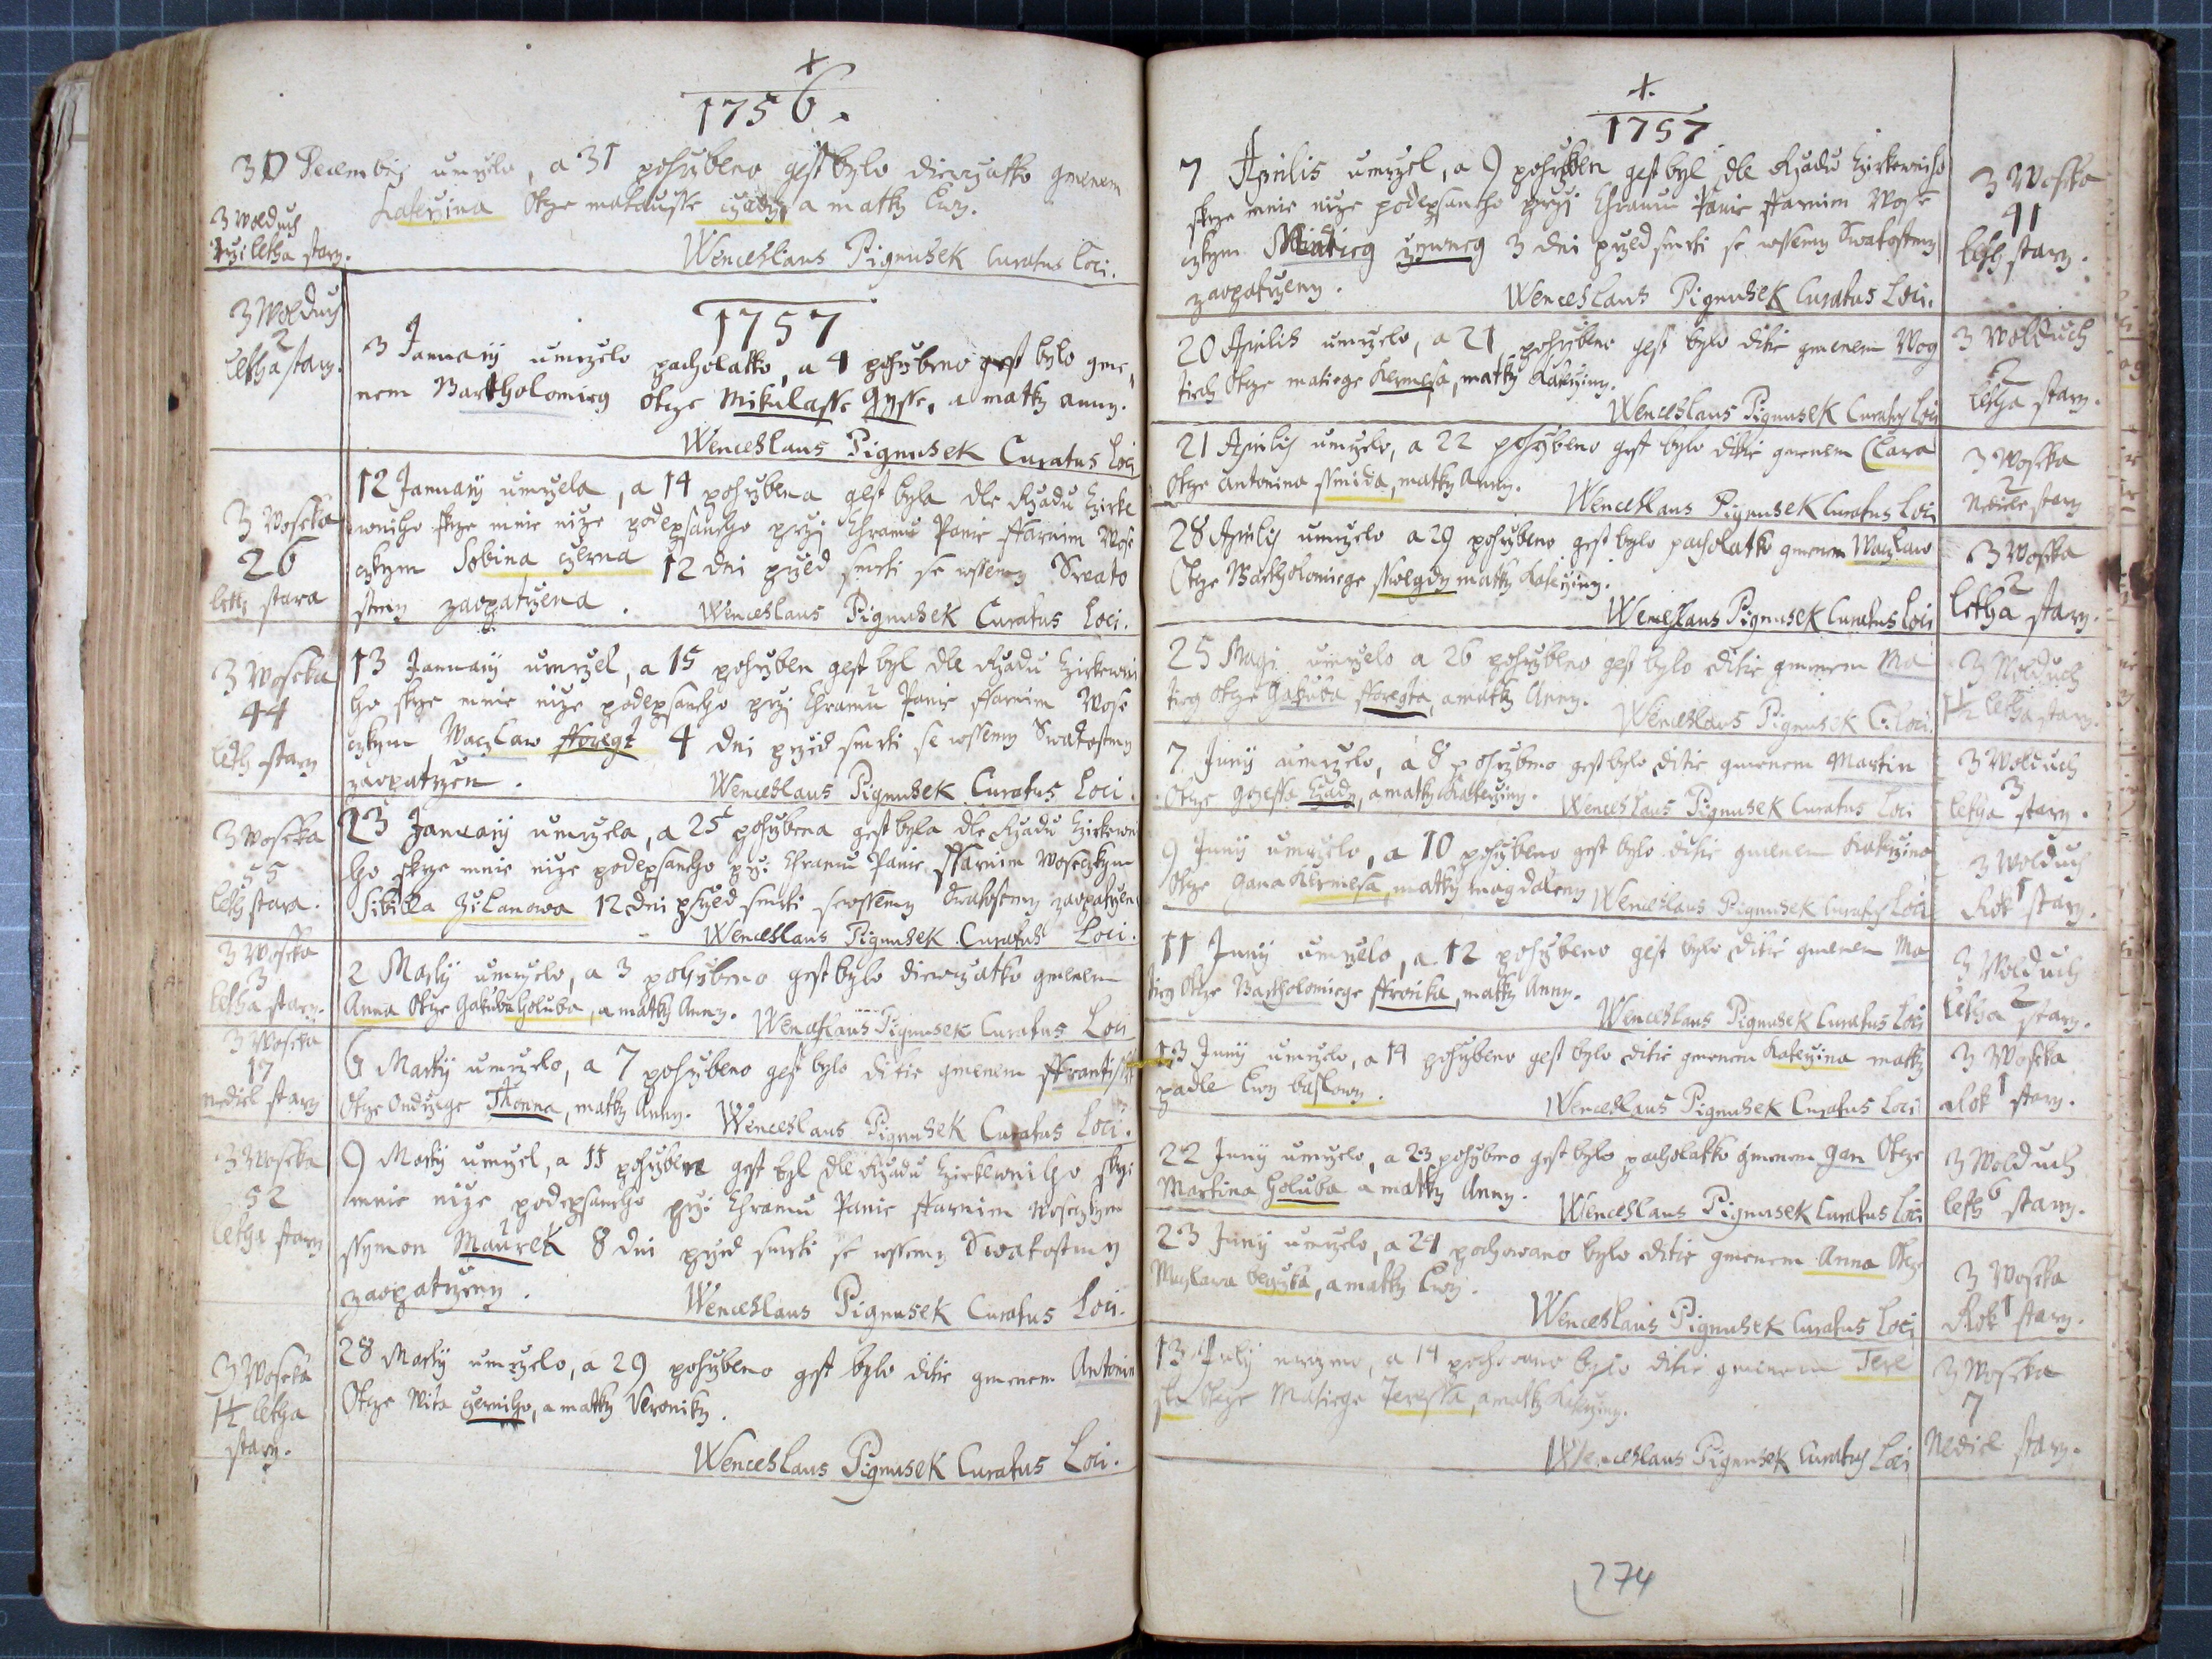 +
1756.
30 Decembris umrzelo, a 31 pohrzbeno gest bylo diewczatko gmenem
Katerzina Otcze matausse a matky Ewy.
Wenceslaus Pignusek Curatus Loci.
z Wolduch
letha stary.
1757
z Wolduch
2
letha stary.
3 January umrzelo pacholatko, a 4 pohrzbeno gest bylo gme,
nem Bartholomieg Otcze Mikulasse Gysse, a matky anny.
Wenceslaus Pignusek Curatus Loci
z Woseka
26
leth stara
12 January umrzela, a 14 pohrzbena gest byla dle Rzadu Czirke
wniho skrze mnie nize podepsaneho przi Chramu Panie starim Wose
czkym Sobina czerna 12 dni przed smrti se wssemy Swato
stmy zaopatrzena. Wenceslaus Pignusek Curatus Loci.
z Woseka
44
leth stary
13 January umrzel, a 15 pohrzben gest byl dle Rzadu Czirkewni
ho skrze mnie nize podepsaneho przi Chramu Panie starim Wose
czkym Waczlaw fforegt 4 dni przed smrti se wssemy Swatostmy
zaopatrzen. Wenceslaus Pignusek Curatus Loci.
z Woseka
55
leth stara.
23 January umrzela, a 25 pohrzbena gest byla dle Rzadu Czirkewni
ho skrze mnie nize podepsaneho przi Chramu Panie starim Woseczkym
Sibilla Zilanowa 12 dni przed smrti se wssemy Swatostmy zaopatrzena
Wenceslaus Pignusek Curatus Loci.
z Woseka
3
letha stary.
2 Marty umrzelo, a 3 pohrzbeno gest bylo diewczatko gmenem
Anna Otcze Gakuba Holuba, a matky Anny. Wenceslaus Pignusek Curatus Loci
z Woseka
17
nediel stary
6 Marty umrzelo, a 7 pohrzbeno gest bylo ditie gmenem
Otcze Ondrzege Thonna, matky Anny. Wenceslaus Pignusek Curatus Loci.
z Woseka
52
letha stary
9 Marty umrzel, a 11 pohrzben gest byl dle Rzadu Czirkewniho skrze
mnie nize podepsaneho przi Chramu Panie starim Woseczkym
ssymon Maurek 8 dni przed smrti se wssemy Swatostmy
zaopatrzeny. Wenceslaus Pignusek Curatus Loci.
z Woseka
1½ letha
stary.
28 Marty umrzelo, a 29 pohrzbeno gest bylo ditie gmenem Antonin
Otcze Wita czerniho, a matky Veroniky.
Wenceslaus Pignusek Curatus Loci.
+.
1757
7 Aprilis umrzel, a 9 pohrzben gest byl dle Rzadu Czirkewniho
skrze mnie nize podepsaneho przi Chramu Panie starim Wose
czkym Matieg 3 dni przed smrti se wssemy Swatostmy
zaopatrzeny. Wenceslaus Pignusek Curatus Loci.
z Woseka
41
leth stary.
20 Aprilis umrzelo, a 21 pohrzbeno gest bylo ditie gmenem Wog
tiech Otcze matiege Kermesa, matky Katerziny.
Wenceslaus Pignusek Curatus Loci
z Wolduch
2
letha stary.
21 Aprilis umrzelo, a 22 pohrzbeno gest bylo ditie gmenem Clara
Otcze antonina ssmida, matky Anny. Wenceslaus Pignusek Curatus Loci
z Woseka
2
Nediele stary
28 Aprilis umrzelo a 29 pohrzbeno gest bylo pacholatko gmenem Waczlaw
Otcze Bartholomiege matky Katerziny.
Wenceslaus Pignusek Curatus Loci
z Woseka
2
letha stary.
25 Magi umrzelo a 26 pohrzbeno gest bylo ditie gmenem Ma
tieg Otcze Gakuba fforegta, a matky Anny. Wenceslaus Pignusek C: Loci.
z Wolduch
1½ letha stary.
7 Juny umrzelo, a 8 pohrzbeno gest bylo ditie gmenem Martin
Otcze a matky Katerziny. Wenceslaus Pignusek Curatus Loci
z Wolduch
3
letha stary.
9 Juny umrzelo, a 10 pohrzbeno gest bylo ditie gmenem Katerzina
Otcze Gana Kermesa, matky magdaleny Wenceslaus Pignusek Curatus Loci
z Wolduch
Rok 1 stary.
11 Juny umrzelo, a 12 pohrzbeno gest bylo ditie gmenem Ma
tieg Otcze Bartholomiege ffronka, matky Anny.
Wenceslaus Pignusek Curatus Loci
z Wolduch
2
letha stary.
13 Juny umrzelo, a 14 pohrzbeno gest bylo ditie gmenem Katerzina matky
padle Ewy baslowy.
Wenceslaus Pignusek Curatus Loci
z Woseka
Rok 1 stary.
22 Juny umrzelo, a 23 pohrzbeno gest bylo pacholatko gmenem Gan Otcze
Martina Holuba a matky Anny. Wenceslaus Pignusek Curatus Loci
z Wolduch
leth 6 stary.
23 Juny umrzelo, a 24 pochowano bylo ditie gmenem Anna Otcze
Waczlawa, a matky Ewy.
Wenceslaus Pignusek Curatus Loci
z Woseka
Rok 1 stary.
13 July umrzelo, a 14 pochowano bylo ditie gmenem Tere
sie Otcze Matiege Feressa, a matky Katerziny.
Wenceslaus Pignusek Curatus Loci
z Woseka
7
Nediel stary.
274